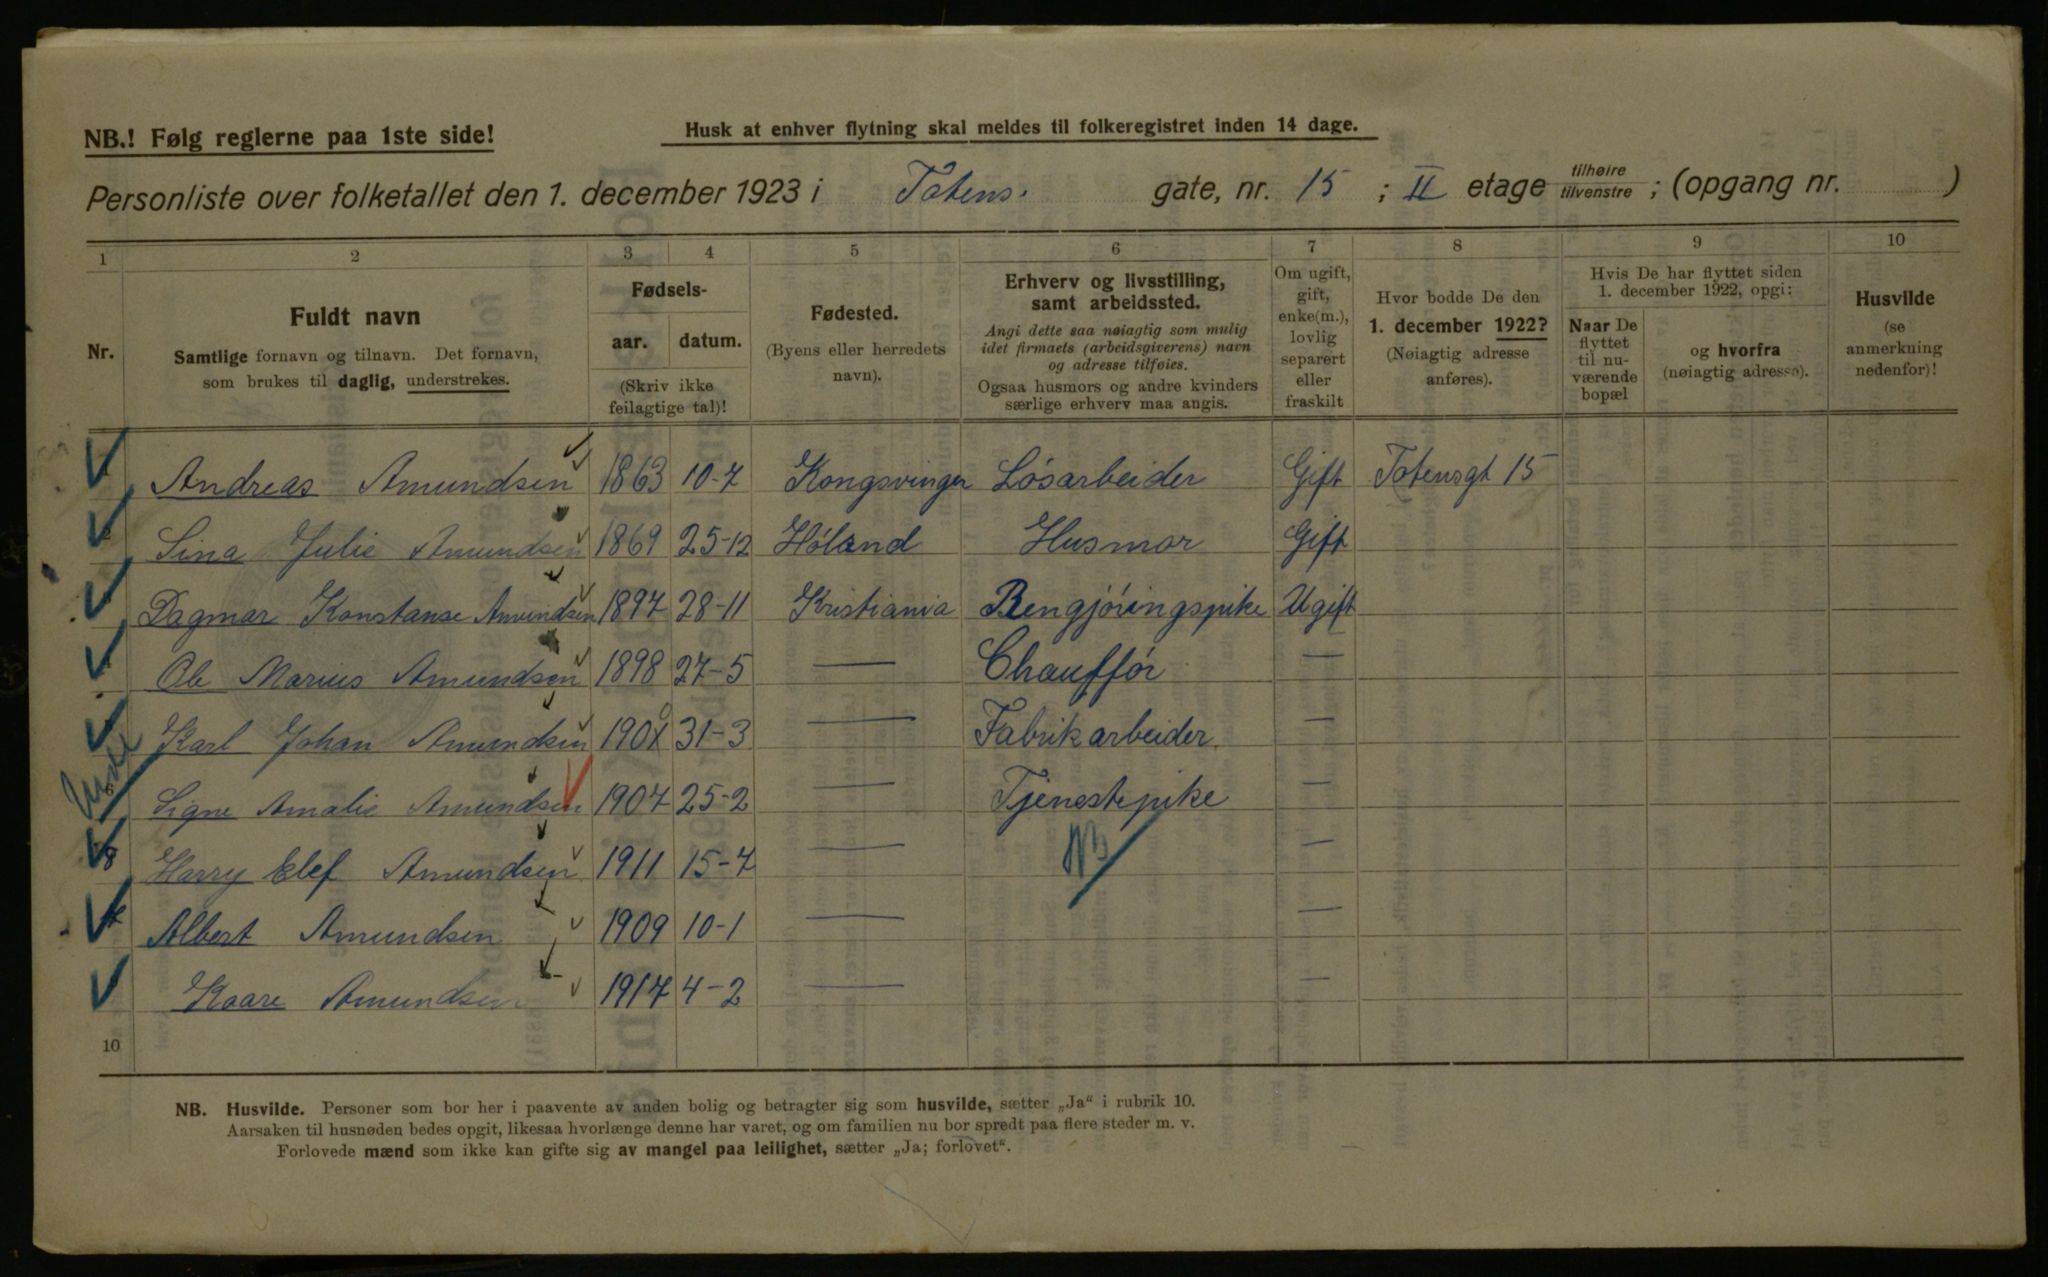 NB.! Følg reglerne paa 1ste side!
Husk at enhver flytning skal meldes til folkeregistret inden 14 dage.
Personliste over folketallet den 1. december 1923 i Totens. gate, nr. 15 ; II etage tilhøire tilvenstre ; (opgang nr. )
1 2 3 4 5 6 7 8 9 10
Nr.
Fuldt navn
Samtlige fornavn og tilnavn. Det fornavn,
som brukes til daglig, understrekes.
Fødsels-
aar. datum.
(Skriv ikke
feilagtige tal)!
Fødested.
(Byens eller herredets
navn).
Erhverv og livsstilling,
samt arbeidssted.
Angi dette saa nøiagtig som mulig
idet firmaets (arbeidsgiverens) navn
og adresse tilføies.
Ogsaa husmors og andre kvinders
særlige erhverv maa angis.
Om ugift,
gift,
enke(m.),
lovlig
separert
eller
fraskilt
Hvor bodde De den
1. december 1922?
(Nøiagtig adresse
anføres).
Hvis De har flyttet siden
1. december 1922, opgi:
Naar De
flyttet
til nu-
værende
bopæl
og hvorfra
(nøiagtig adresse).
Husvilde
(se
anmerkning
nedenfor)!
Andreas Amundsen 1863 10-7 Kongsvinger Løsarbeider Gift Totensgt 15
Lina Julie Amundsen 1869 25-12 Høland Husmor Gift
Dagmar Konstanse Amundsen 1897 28-11 Kristiania Rengjøringspike Ugift
Ole Marius Amundsen 1898 27-5 — Chauffør —
Karl Johan Amundsen 31-3 — Fabrikarbeider. —
6 Signe Amalie Amundsen 1907 25-2 — Tjenestepike —
8 Harry Elef Amundsen 1911 15-7 — NB —
Albert Amundsen 1909 10-1 — —
Kaare Amundsen 1917 4-2 — —
10
NB. Husvilde. Personer som bor her i paavente av anden bolig og betragter sig som husvilde, sætter „Ja“ i rubrik 10.
Aarsaken til husnøden bedes opgit, likesaa hvorlænge denne har varet, og om familien nu bor spredt paa flere steder m. v.
Forlovede mænd som ikke kan gifte sig av mangel paa leilighet, sætter „Ja; forlovet“.